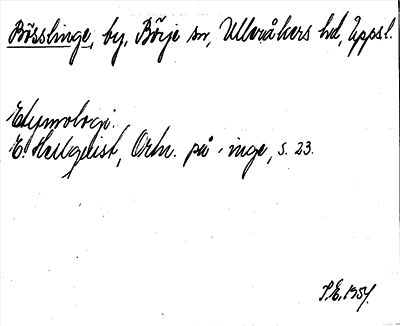 Bösslinge, by, Börje sn, Ulleråkers hd, Uppsl.
Etymologi.
E. Hellquist, Ortn. på -inge, s. 23.
S.E. 1954.